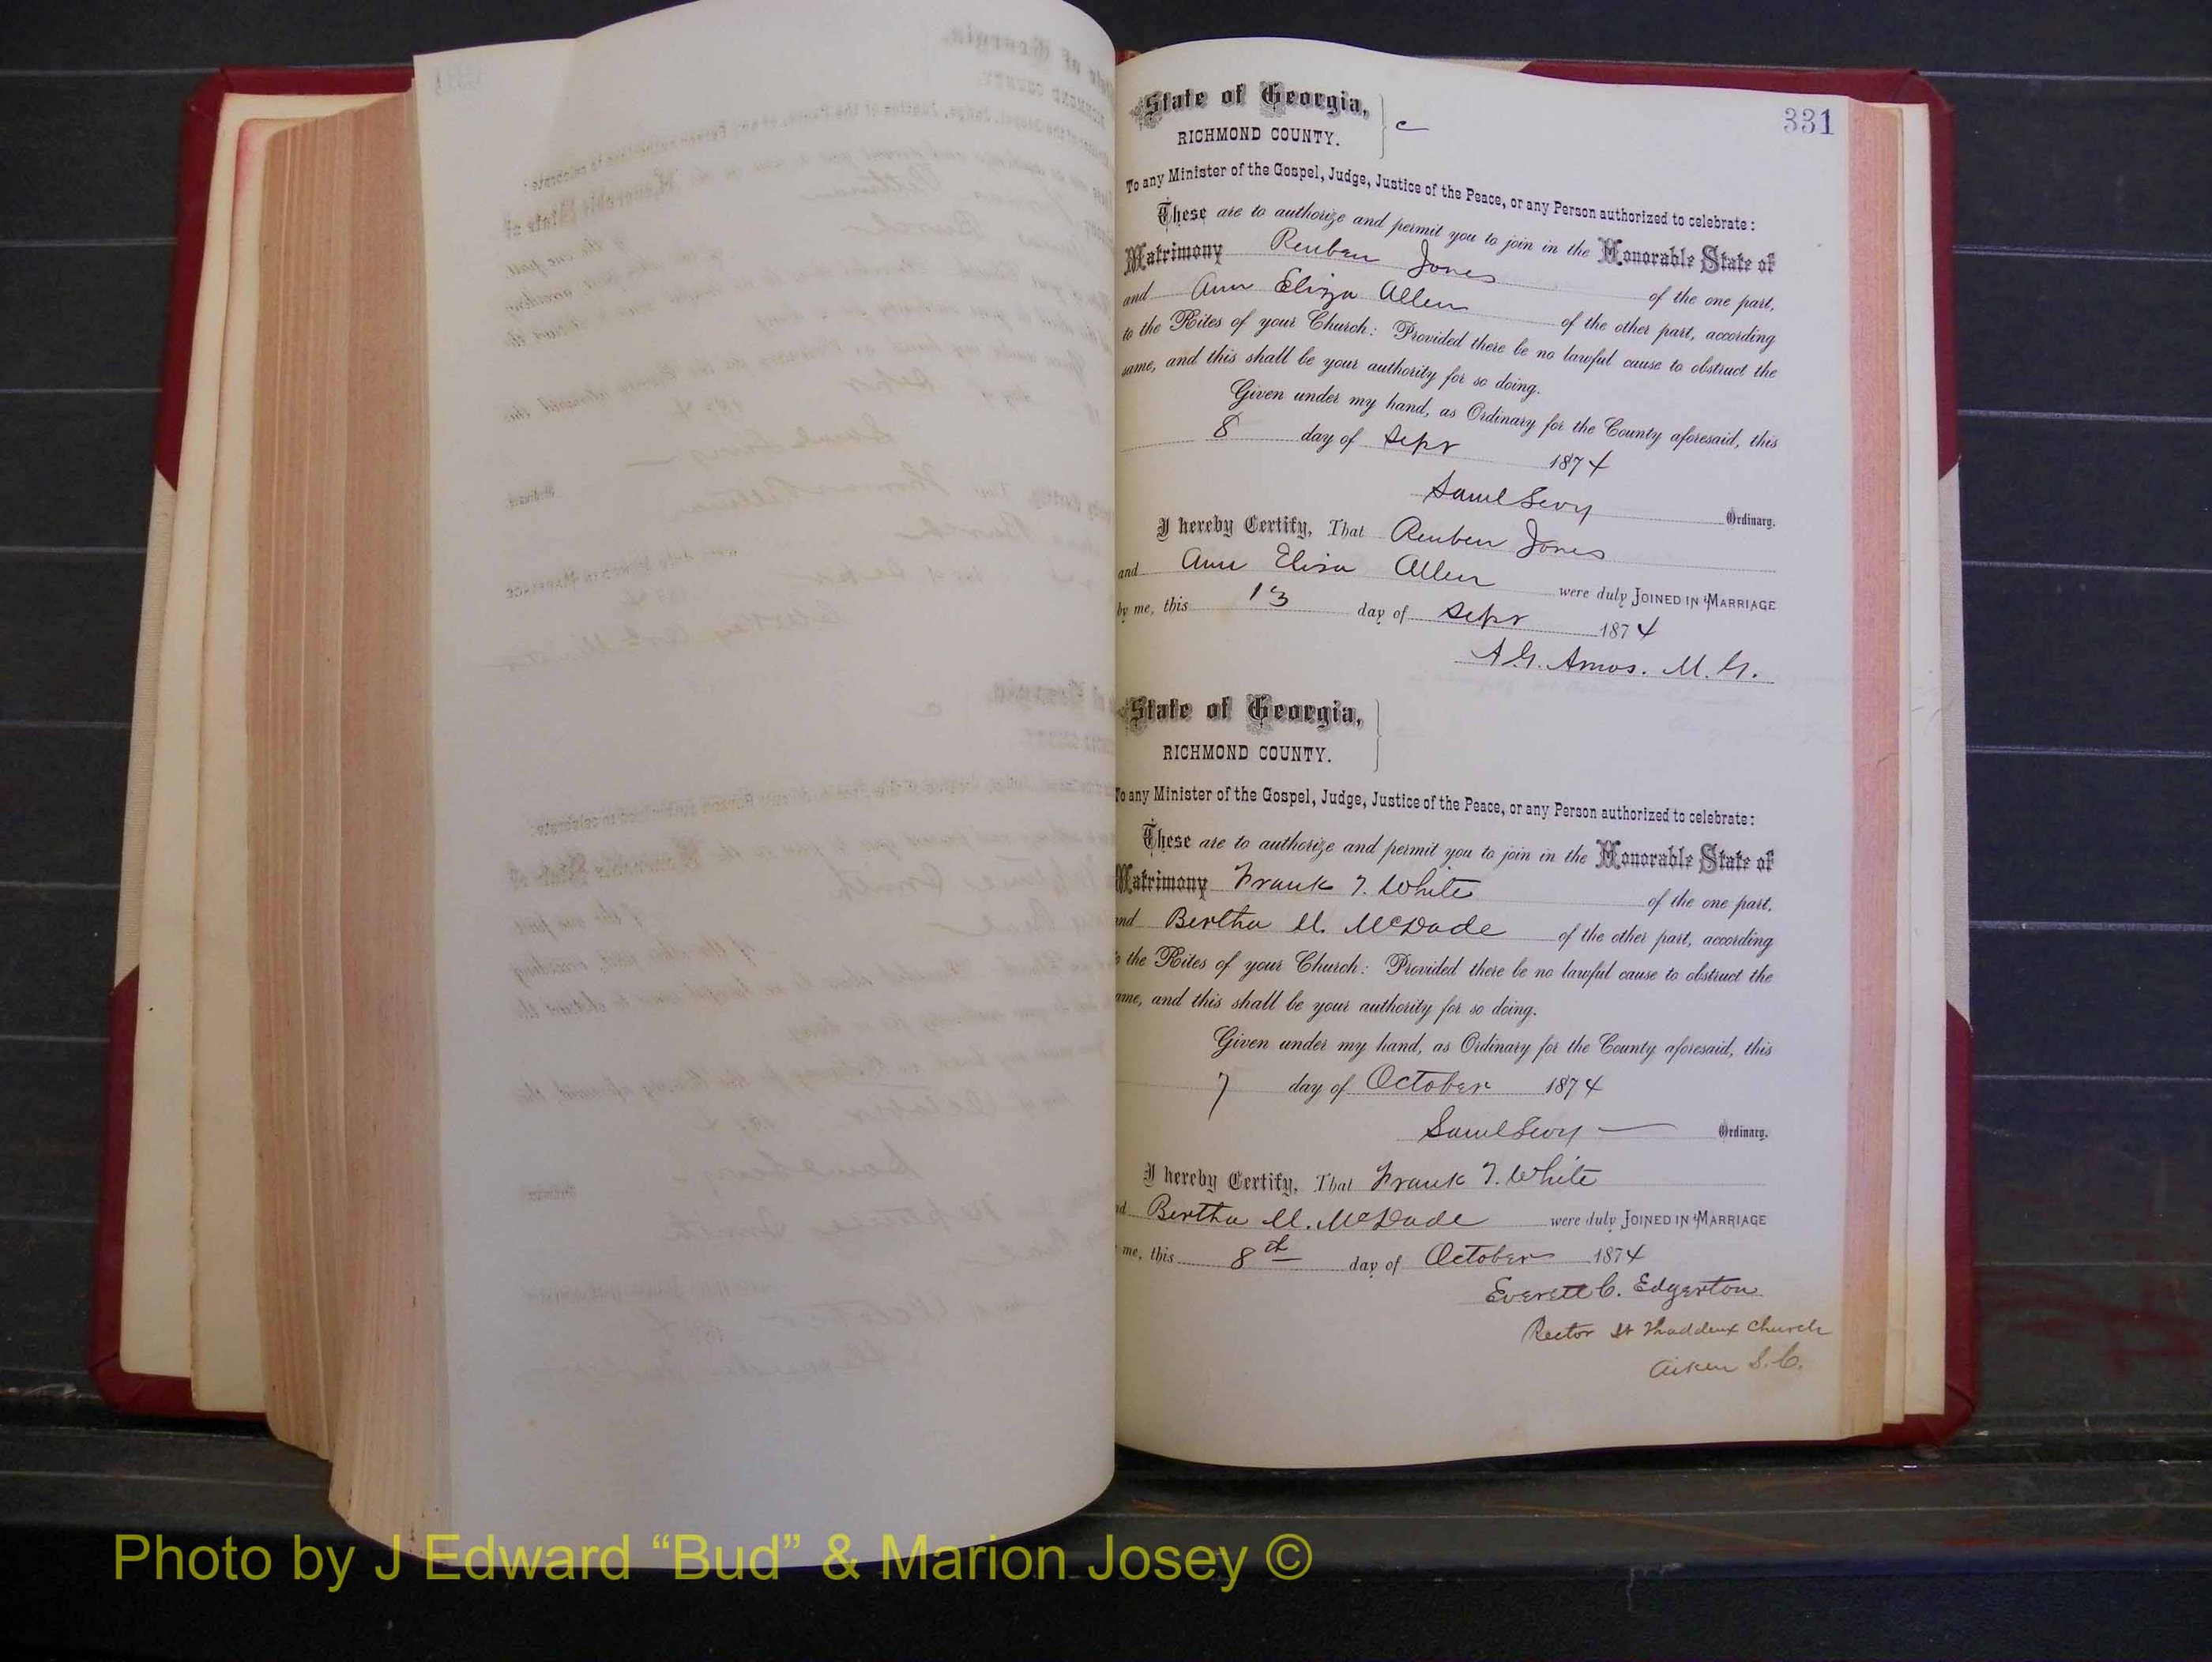 331
State of Georgia,
RICHMOND COUNTY.
c
To any Minister of the Gospel, Judge, Justice of the Peace, or any Person authorized to celebrate:
These are to authorize and permit you to join in the Honorable State of
Matrimony Reuben Jones of the one part,
and Ann Eliza Allen of the other part, according
to the Rites of your Church: Provided there be no lawful cause to obstruct the
same, and this shall be your authority for so doing.
Given under my hand, as Ordinary for the County aforesaid, this
8 day of Sepr 1874
Saml Levy Ordinary.
I hereby Certify, That Reuben Jones
and Ann Eliza Allen were duly JOINED IN MARRIAGE
by me, this 13 day of Sepr 1874
A. G. Amos. M. G.
State of Georgia,
RICHMOND COUNTY.
To any Minister of the Gospel, Judge, Justice of the Peace, or any Person authorized to celebrate:
These are to authorize and permit you to join in the Honorable State of
Matrimony Frank T. White of the one part,
and Bertha M. McDade of the other part, according
o the Rites of your Church: Provided there be no lawful cause to obstruct the
ame, and this shall be your authority for so doing.
Given under my hand, as Ordinary for the County aforesaid, this
7 day of October 1874
Saml Levy — Ordinary.
I hereby Certify, That Frank T. White
nd Bertha M. McDade were duly JOINED IN MARRIAGE
me, this 8th day of October 1874
Everett C. Edgerton
Rector St Thaddeux Church
Aiken S.C.
Photo by J Edward “Bud” & Marion Josey ©